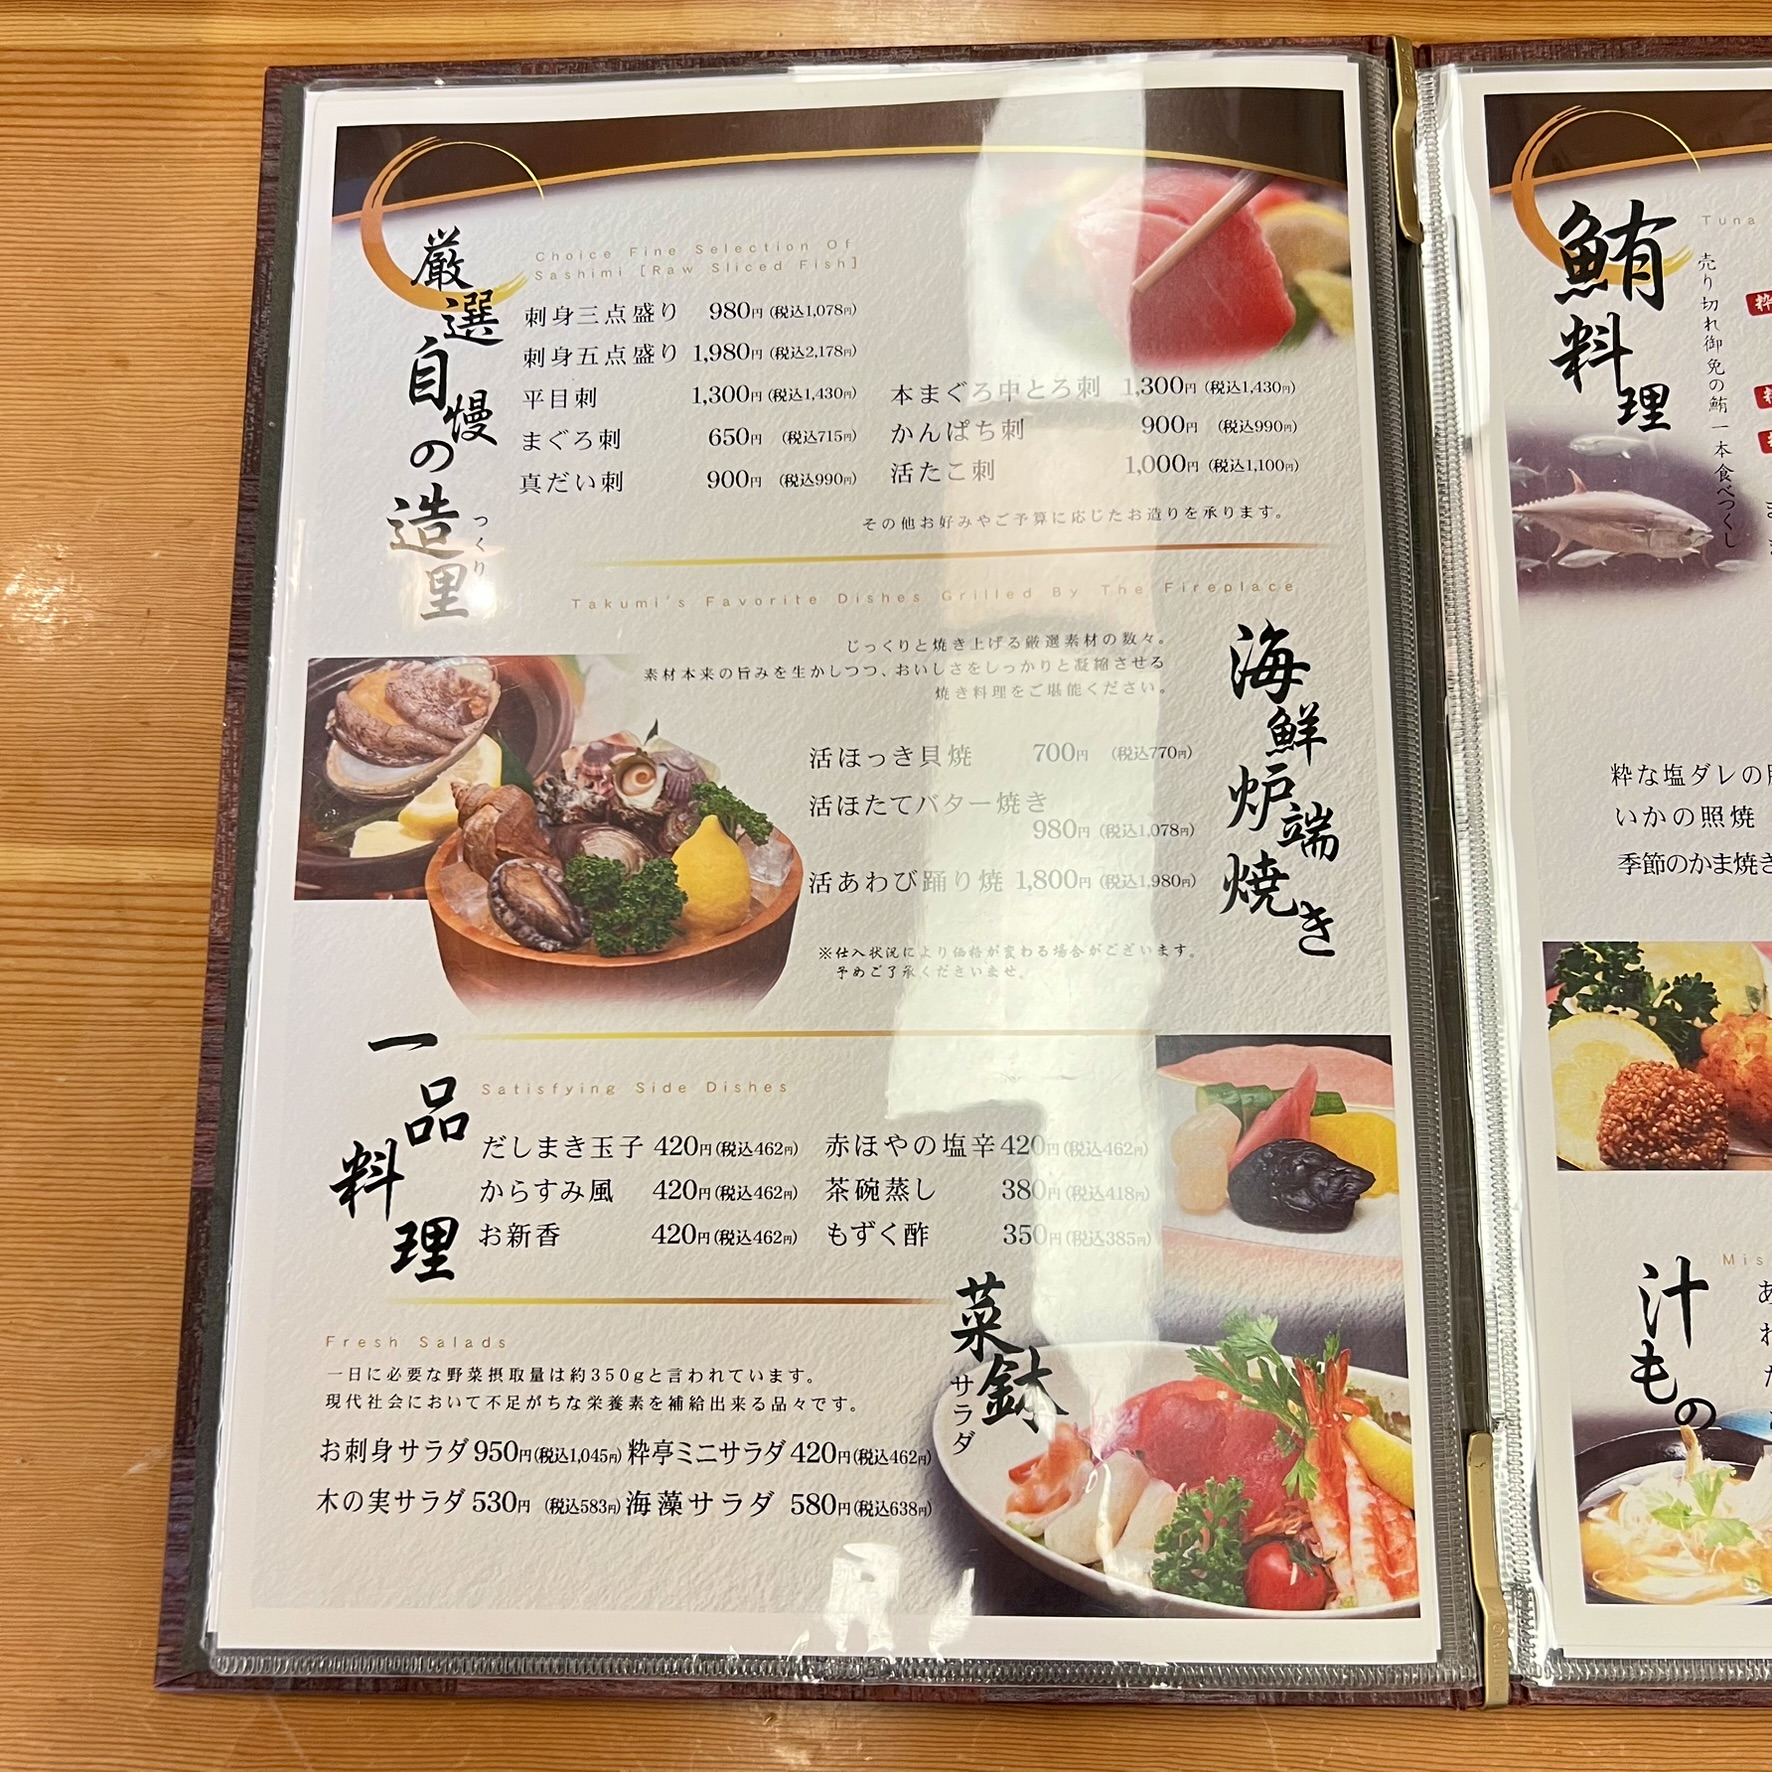 厳選自慢の造里
つくり
Choice Fine Selection Of
Sashimi [Raw Sliced Fish]
刺身三点盛り 980円(税込1,078円)
刺身五点盛り 1,980円(税込2,178円)
平目刺 1,300円(税込1,430円)
まぐろ刺 650円 (税込715円)
真だい刺 900円 (税込990円)
本まぐろ中とろ刺 1,300円(税込1,430円)
かんぱち刺 900円 (税込990円)
活たこ刺 1,000円(税込1,100円)
その他お好みやご予算に応じたお造りを承ります。
Takumi's Favorite Dishes Grilled By The Fireplace
海鮮炉端焼き
じっくりと焼き上げる厳選素材の数々。
素材本来の旨みを生かしつつ、おいしさをしっかりと凝縮させる
焼き料理をご堪能ください。
活ほっき貝焼 700円 (税込770円)
活ほたてバター焼き
980円(税込1,078円)
活あわび踊り焼 1,800円(税込1,980円)
※仕入状況により価格が変わる場合がございます。
予めご了承くださいませ。
一品料理
Satisfying Side Dishes
だしまき玉子 420円(税込462円)
からすみ風 420円(税込462円)
お新香 420円(税込462円)
赤ほやの塩辛 420円(税込462円)
茶碗蒸し 380円(税込418円)
もずく酢 350円(税込385円)
菜鉢
サラダ
Fresh Salads
一日に必要な野菜摂取量は約350gと言われています。
現代社会において不足がちな栄養素を補給出来る品々です。
お刺身サラダ 950円(税込1,045円) 粋亭ミニサラダ 420円(税込462円)
木の実サラダ 530円 (税込583円) 海藻サラダ 580円(税込638円)
鮪料理
Tuna
売り切れ御免の鮪一本食べつくし
粋な塩ダレの
いかの照焼
季節のかま焼き
汁もの
Mis